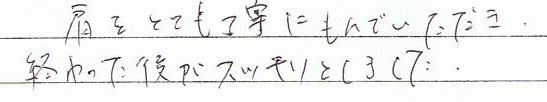 肩をとても丁寧にもんでいただき.
終わった後がスッキリとしました.